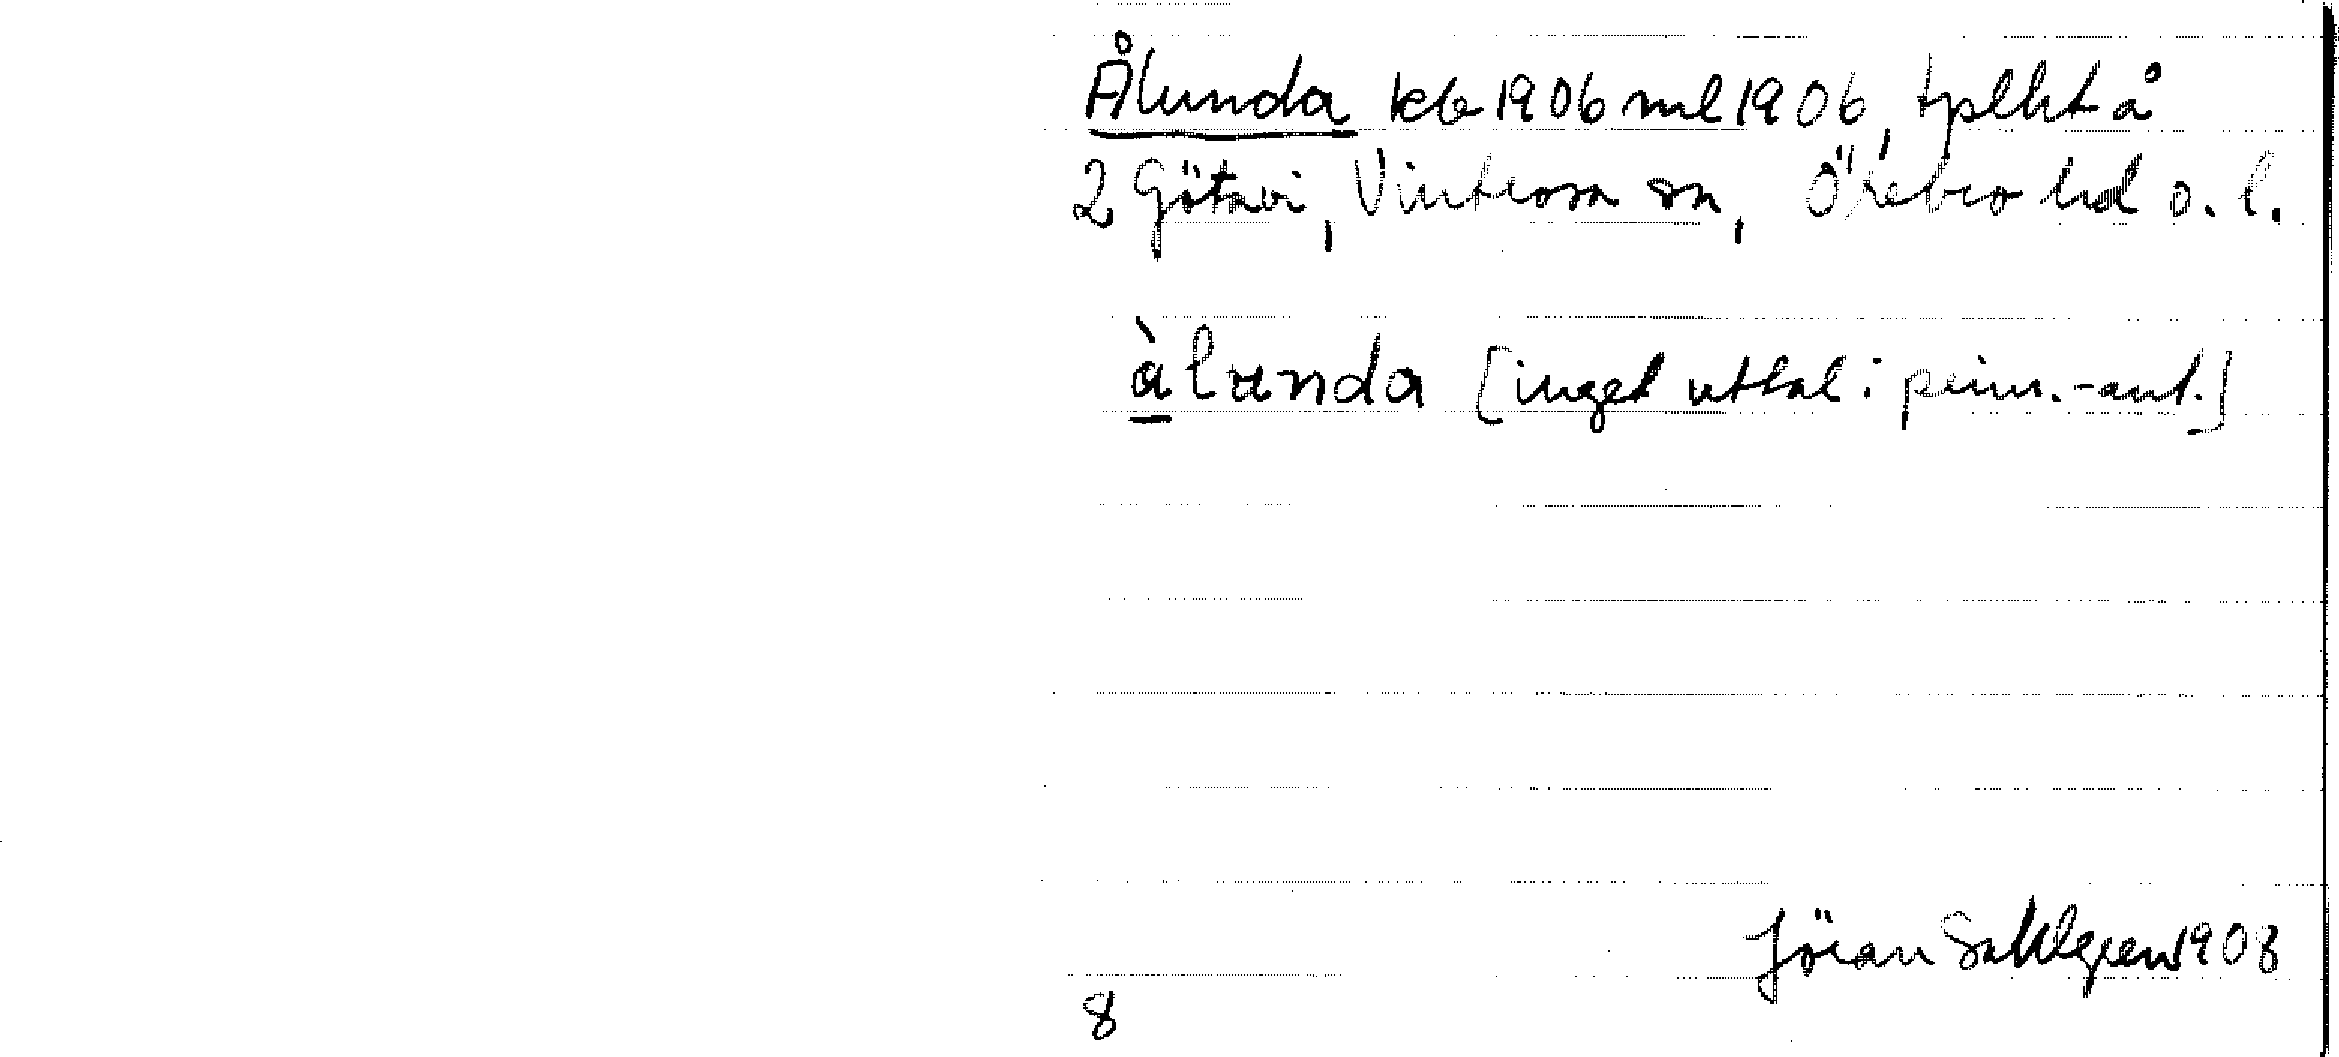 Ålunda kb 1906 ml 1906, tplht å
2 Götavi, Vintrosa sn, Örebro hd o. l.
àlunda [inget uttal i prim.-ant.]
Jöran Sahlgren 1908
8